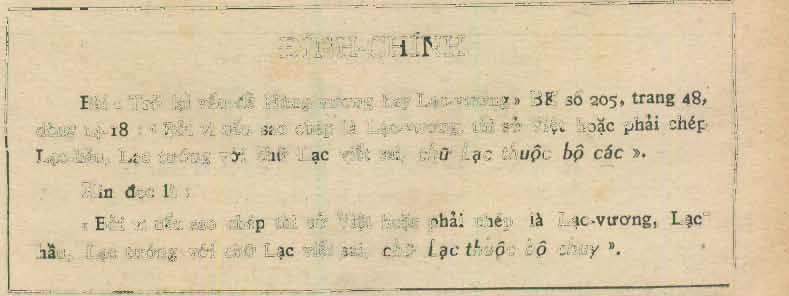 ĐÍNH-CHÍNH
Bài « Trở lại vấn-đề Hùng-vương hay Lạc-vương » BK số 205, trang 48,
dòng 18 : « Bởi vì nếu sao chép là Lạc-vương, thì sử Việt hoặc phải chép
Lạc-hầu, Lạc tướng với chữ Lạc viết sai, chữ Lạc thuộc bộ các ».
Xin đọc là :
« Bởi vì nếu sao chép thì sử Việt hoặc phải chép là Lạc-vương, Lạc
hầu, Lạc tướng với chữ Lạc viết sai, chữ Lạc thuộc bộ chuy ».